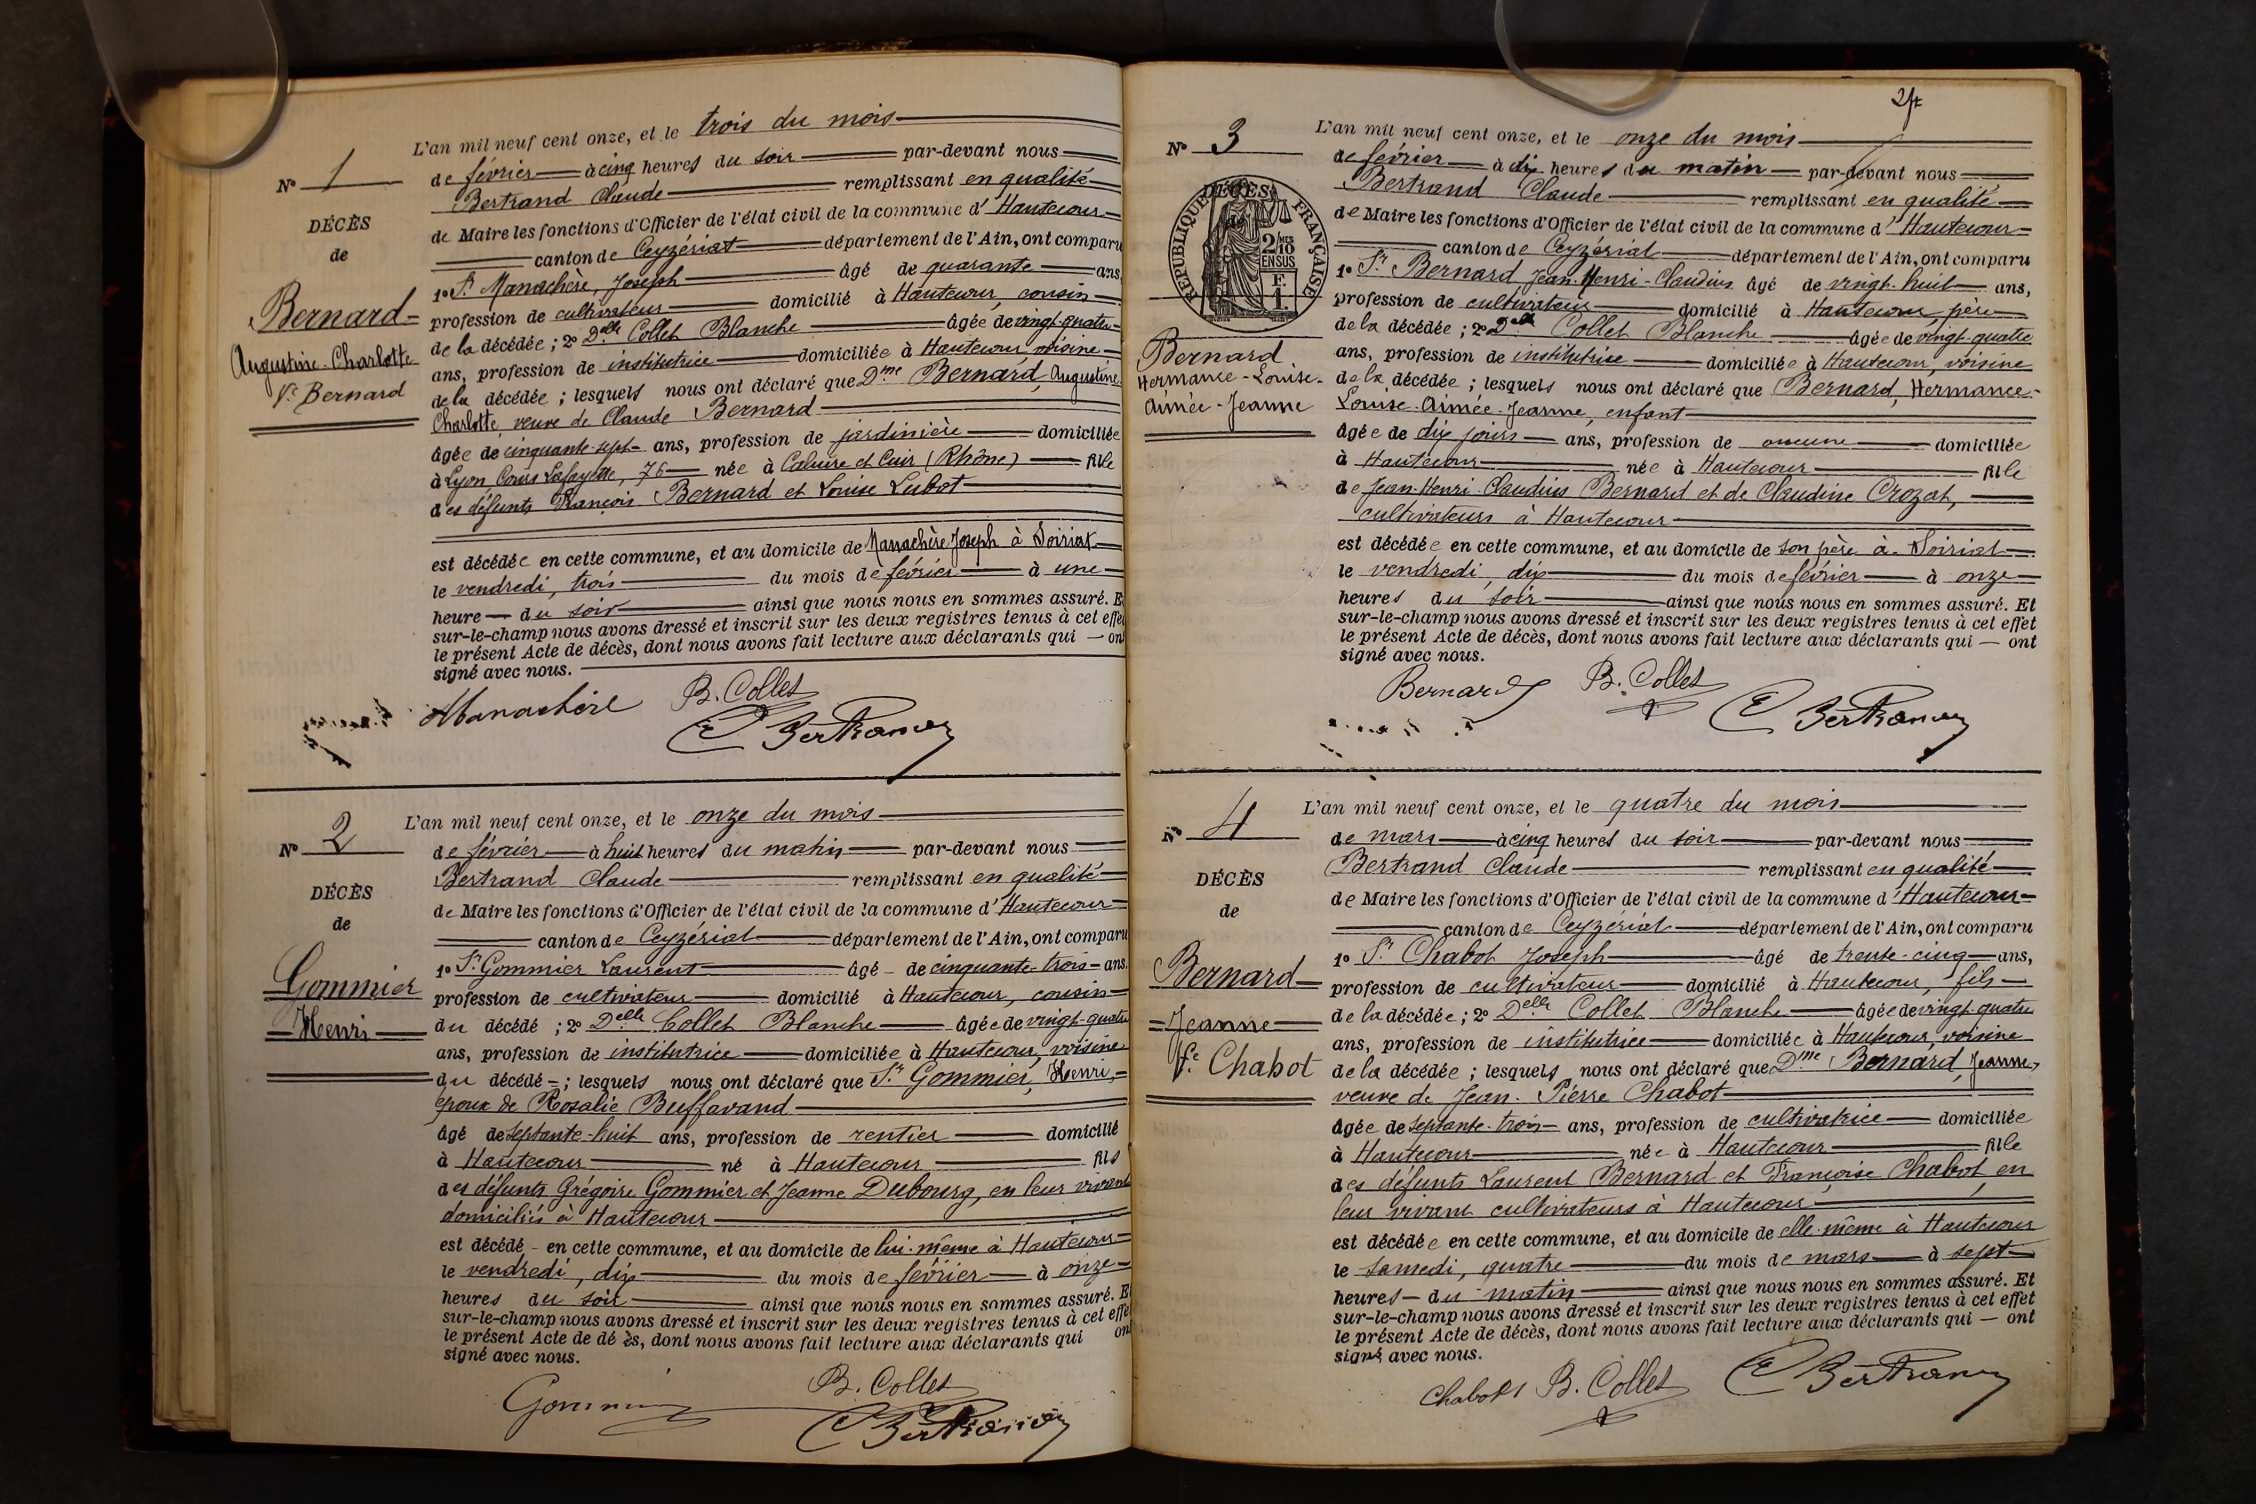 L'an mil neuf cent onze, et le trois du mois
N° 1
de février à cinq heures du soir par-devant nous
Bertrand Claude remplissant en qualité
DÉCÈS
de Maire les fonctions d'Officier de l'état civil de la commune d'Hautecour
de
canton de Ceyzériat département de l'Ain, ont comparu
1° Sr Manachère, Joseph âgé de quarante ans,
Bernard
profession de cultivateur domicilié à Hautecour, cousin
de la décédée ; 2° Delle Collet Blanche âgée de vingt-quatre
Augustine-Charlotte
ans, profession de institutrice domiciliée à Hautecour, voisine
Ve Bernard
de la décédée ; lesquels nous ont déclaré que Dme Bernard, Augustine
Charlotte, veuve de Claude Bernard
âgée de cinquante-sept ans, profession de jardinière domiciliée
à Lyon, Cours Lafayette, 76 née à Caluire et Cuir (Rhône) fille
des défunts François Bernard et Louise Lubot
est décédée en cette commune, et au domicile de Manachère Joseph à Soiriat
le vendredi, trois du mois de février à une
heure du soir ainsi que nous nous en sommes assuré. Et
sur-le-champ nous avons dressé et inscrit sur les deux registres tenus à cet effet
le présent Acte de décès, dont nous avons fait lecture aux déclarants qui ont
signé avec nous.
Manachère B. Collet
C Bertrand
L'an mil neuf cent onze, et le onze du mois
N° 2
de février à huit heures du matin par-devant nous
Bertrand Claude remplissant en qualité
DÉCÈS
de Maire les fonctions d'Officier de l'état civil de la commune d'Hautecour
de
canton de Ceyzériat département de l'Ain, ont comparu
1° Sr Gommier Laurent âgé de cinquante-trois ans,
Gommier
profession de cultivateur domicilié à Hautecour, cousin
Henri
du décédé ; 2° Delle Collet Blanche âgée de vingt-quatre
ans, profession de institutrice domiciliée à Hautecour, voisine
du décédé ; lesquels nous ont déclaré que Sr Gommier, Henri,
époux de Rosalie Buffavand
âgé de septante-huit ans, profession de rentier domicilié
à Hautecour né à Hautecour fils
des défunts Grégoire Gommier et Jeanne Dubourg, en leur vivant
domiciliés à Hautecour
est décédé en cette commune, et au domicile de lui-même à Hautecour
le vendredi, dix du mois de février à onze
heures du soir ainsi que nous nous en sommes assuré. Et
sur-le-champ nous avons dressé et inscrit sur les deux registres tenus à cet effet
le présent Acte de dé ès, dont nous avons fait lecture aux déclarants qui ont
signé avec nous.
Gommier B. Collet
C Bertrand
L'an mil neuf cent onze, et le onze du mois
N° 3
de février à dix heures du matin par-devant nous
Bertrand Claude remplissant en qualité
DÉCÈS
RÉPUBLIQUE FRANÇAISE
2/10 MES
EN SUS
F.
1
de Maire les fonctions d'Officier de l'état civil de la commune d'Hautecour
canton de Ceyzériat département de l'Ain, ont comparu
1° Sr Bernard, Jean-Henri-Claudius âgé de vingt-huit ans,
profession de cultivateur domicilié à Hautecour, père
de la décédée ; 2° Delle Collet Blanche âgée de vingt-quatre
Bernard
ans, profession de institutrice domiciliée à Hautecour, voisine
Hermance-Louise-
de la décédée ; lesquels nous ont déclaré que Bernard, Hermance-
Aimée-Jeanne
Louise-Aimée-Jeanne, enfant
âgée de dix jours ans, profession de aucune domiciliée
à Hautecour née à Hautecour fille
de Jean-Henri-Claudius Bernard et de Claudine Crozat,
cultivateurs à Hautecour
est décédée en cette commune, et au domicile de son père à Soiriat
le vendredi, dix du mois de février à onze
heures du soir ainsi que nous nous en sommes assuré. Et
sur-le-champ nous avons dressé et inscrit sur les deux registres tenus à cet effet
le présent Acte de décès, dont nous avons fait lecture aux déclarants qui ont
signé avec nous.
Bernard B. Collet
C Bertrand
L'an mil neuf cent onze, et le quatre du mois
N° 4
de mars à cinq heures du soir par-devant nous
Bertrand Claude remplissant en qualité
DÉCÈS
de Maire les fonctions d'Officier de l'état civil de la commune d'Hautecour
de
canton de Ceyzériat département de l'Ain, ont comparu
1° Sr Chabot Joseph âgé de trente-cinq ans,
Bernard
profession de cultivateur domicilié à Hautecour, fils
de la décédée ; 2° Delle Collet Blanche âgée de vingt-quatre
Jeanne
ans, profession de institutrice domiciliée à Hautecour, voisine
Ve Chabot
de la décédée ; lesquels nous ont déclaré que Dme Bernard, Jeanne,
veuve de Jean-Pierre Chabot
âgée de septante-trois ans, profession de cultivatrice domiciliée
à Hautecour née à Hautecour fille
des défunts Laurent Bernard et Françoise Chabot, en
leur vivant cultivateurs à Hautecour
est décédée en cette commune, et au domicile de elle-même à Hautecour
le samedi, quatre du mois de mars à sept
heures du matin ainsi que nous nous en sommes assuré. Et
sur-le-champ nous avons dressé et inscrit sur les deux registres tenus à cet effet
le présent Acte de décès, dont nous avons fait lecture aux déclarants qui ont
signé avec nous.
Chabot B. Collet C Bertrand